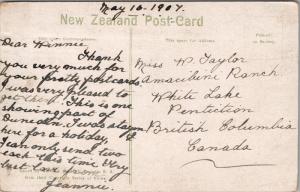 May 16. 1907.
New Zealand Post-Card
Dear Winnie.
Thank
you very much for
your pretty postcards
I was very pleased to
get them. This is one
showing a part of
Dunedin. I was staying
here for a holiday,
Jean only send two
each this time Very
best love from
Jeannie.
Miss W. Taylor
Ranch
White Lake
Penticton
British Columbia
Canada